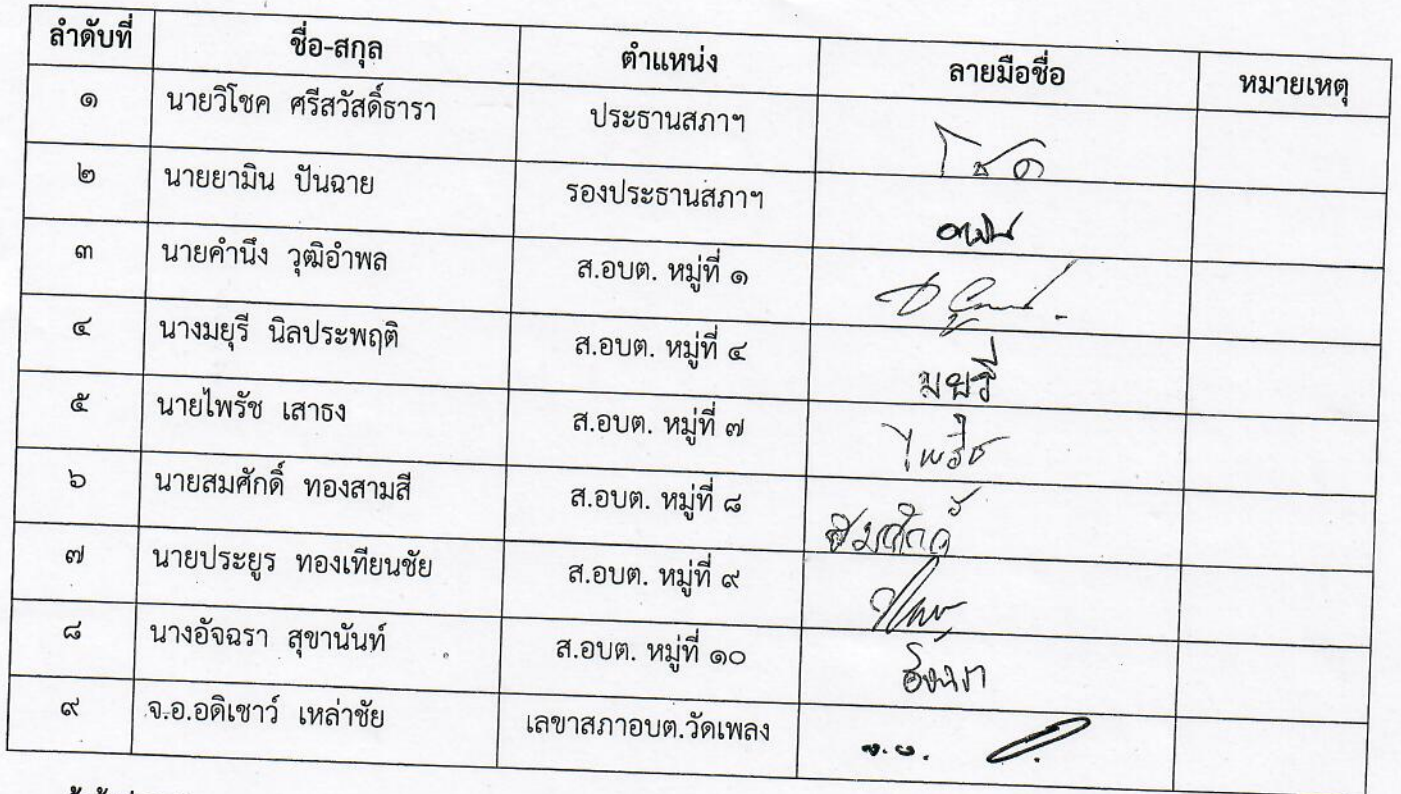 ลำดับที่ ชื่อ-สกุล ตำแหน่ง ลายมือชื่อ หมายเหตุ
๑ นายวิโชค ศรีสวัสดิ์ธารา ประธานสภาฯ
๒ นายยามิน ปันฉาย รองประธานสภาฯ
๓ นายคำนึง วุฒิอำพล ส.อบต. หมู่ที่ ๑
๔ นางมยุรี นิลประพฤติ ส.อบต. หมู่ที่ ๔ มยุรี
๕ นายไพรัช เสาธง ส.อบต. หมู่ที่ ๗ ไพรัช
๖ นายสมศักดิ์ ทองสามสี ส.อบต. หมู่ที่ ๘ สมศักดิ์
๗ นายประยูร ทองเทียนชัย ส.อบต. หมู่ที่ ๙
๘ นางอัจฉรา สุขานันท์ ส.อบต. หมู่ที่ ๑๐ อัจฉรา
๙ จ.อ.อดิเชาว์ เหล่าชัย เลขาสภาอบต.วัดเพลง จ.อ.